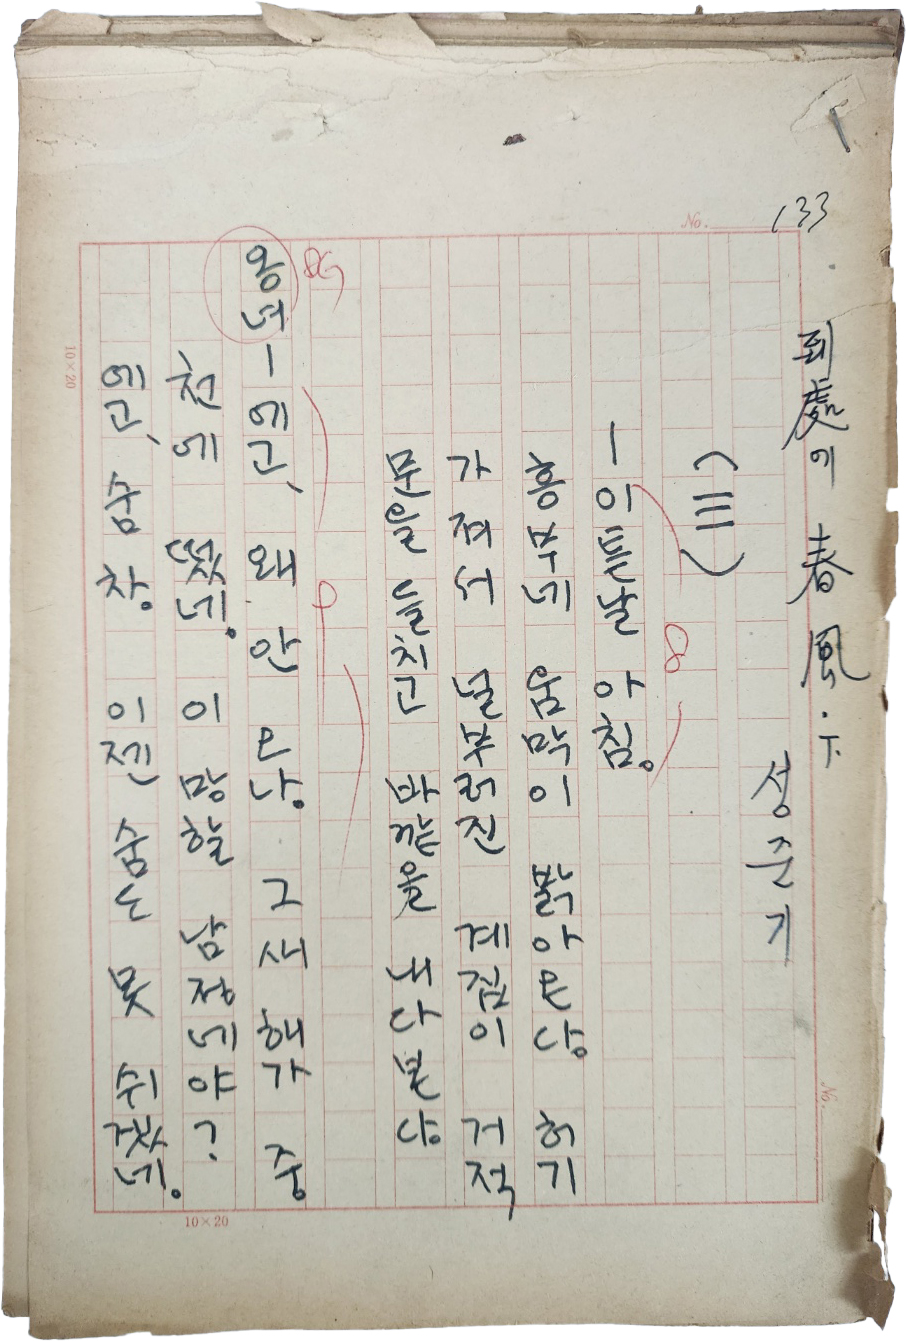 No. 133
到處에 春風·下
성준기
(三)
— 이튿날 아침。
흥부네 움막이 밝아온다。 허기
가 져서 널부러진 계집이 거적
문을 들치고 바깥을 내다본다。
옹녀 — 에고、 왜 안 오나。 그새 해가 중
천에 떴네。 이 망할 남정네야?
에고、 숨 차。 이젠 숨도 못 쉬겠네。
10×20
10×20
No.